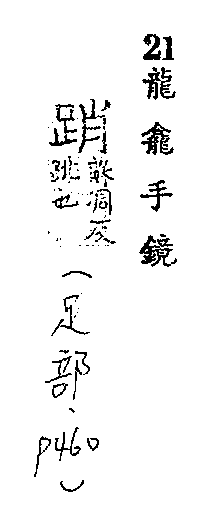 21龍龕手鏡
踃
蘇凋反
跳也
(足部、p460)